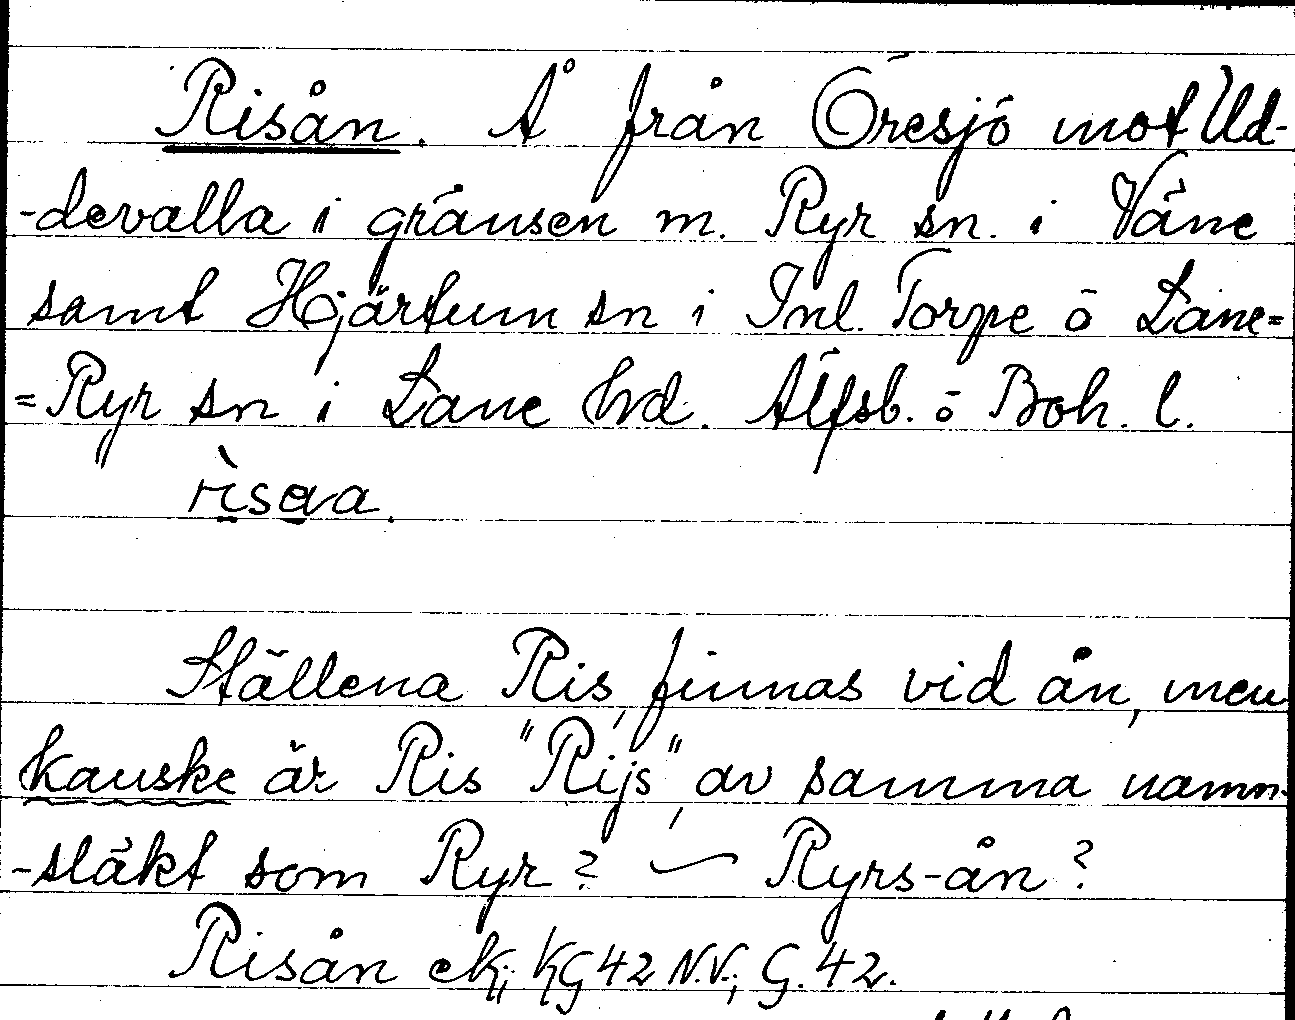 Risån. Å från Öresjö mot Ud-
-devalla i gränsen m. Ryr sn. i Väne
samt Hjärtum sn i Inl. Torpe ō Lane=
=Ryr sn i Lane hd. Älfsb. ō Boh. l.
rìsøva.
Ställena Ris, finnas vid ån, men
kanske är Ris "Rijs", av samma namn-
-släkt som Ryr? — Ryrs-ån?
Risån ek; KG 42 N.V.; G. 42.